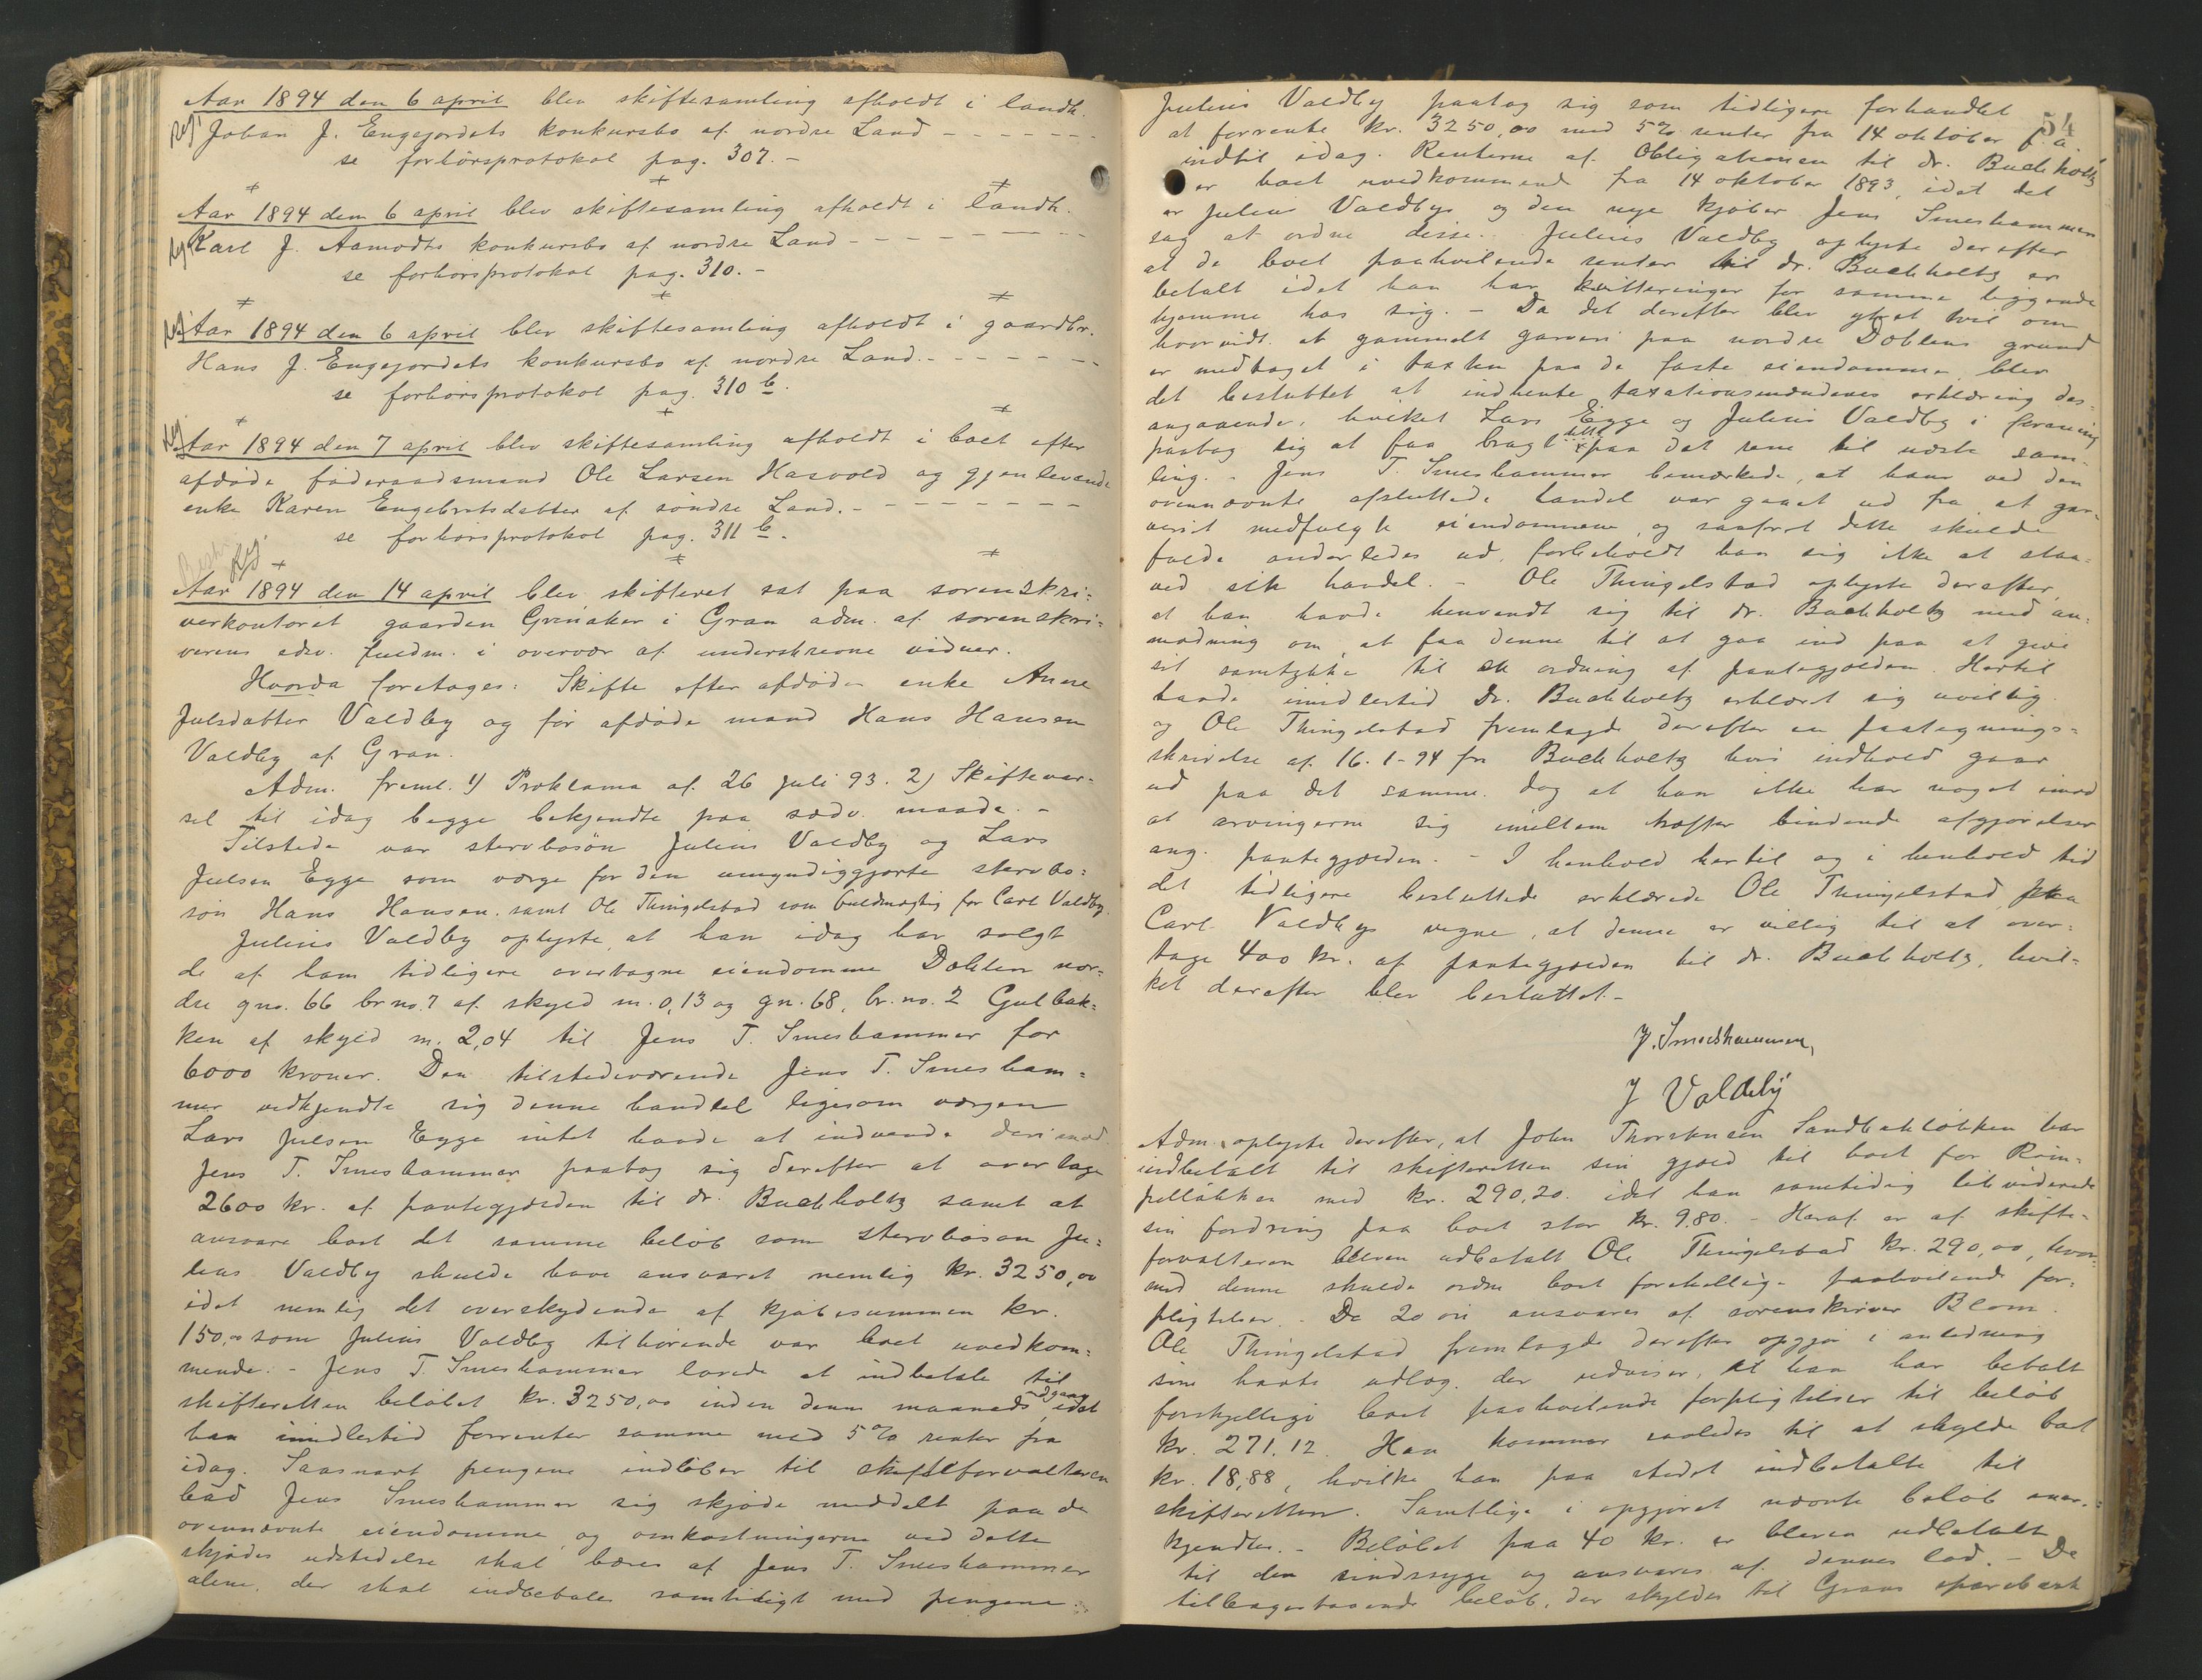 Aar 1894 den 6 april blev skiftesamling afholdt i landh.
Reg. Johan J. Engejordets konkursbo af nordre Land - - - - - - -
se forhörsprotokol pag. 307. -
Aar 1894 dem 6 april blev skiftesamling afholdt i landh.
Reg. Karl J. Aamodts konkursbo af nordre Land - - - - - - - -
se forhörsprotokol pag. 310. -
Reg. Aar 1894 den 6 april blev skiftesamling afholdt i gaardbr.
Hans J. Engejordets konkursbo af nordre Land. - - - - - - -
se forhörsprotokol pag. 310 b.
Reg. Aar 1894 den 7 april blev skiftesamling afholdt i boet efter
afdöde föderaadsmand Ole Larsen Hasvold og gjenlevende
enke Karen Engebretsdatter af söndre Land. - - - - - - - -
se forhörsprotokol pag. 311 b.
Reg.
Aar 1894 den 14 april blev skifteret sat paa sorenskri=
verkontoret gaarden Grinaker i Gran adm. af sorenskri=
verens edsv. fuldm. i overvær af underskrevne vidner.
Hvorda foretoges: Skifte efter afdöde enke Anne
Julsdatter Valdby og för afdöde mand Hans Hansen
Valdby af Gran.
Adm. freml. 1) Proklama af 26 juli 93. 2) Skiftevar=
sel til idag begge bekjendte paa sædv. maade. -
Tilstede var stervbosön Julius Valdby og Lars
Julsen Egge som værge for den umyndiggjorte stervbo=
sön Hans Hansen. samt Ole Thingelstad som fuldmægtig for Carl Valdby.
Julius Valdby oplyste, at han idag har solgt
de af ham tidligere overtagne eiendomme Dablen nor=
dre gno. 66 br no. 7 af skyld m. 0,13 og gn. 68, br. no. 2 Gulbak=
ken af skyld m. 2,04 til Jens T. Smeshammer for
6000 kroner. Den tilstedeværende Jens T. Smesham=
mer vedkjendte sig denne handel ligesom værgen
Lars Julsen Egge intet havde at indvende derimod.
Jens T. Smeshammer paatog sig derefter at overtage
2600 kr. af pantegjælden til dr. Buchholtz samt at
ansvare boet det samme belöb som stervbosön Ju=
lius Valdby skulde have ansvaret nemlig kr. 3250,00
idet nemlig det overskydende af kjöbesummen kr.
150,00 som Julius Valdby tilhörende var boet uvedkom=
mende. - Jens T. Smeshammer lovede at indbetale til
skifteretten belöbet kr. 3250,00 inden denne maaneds udgang idet
han imidlertid forrenter samme med 5 % renter fra
idag. Saasnart pengene indlöber til skifteforvalteren
bad Jens Smeshammer sig skjöde meddelt paa de
ovennævnte eiendomme og omkostningerne ved dette
skjödes udstedelse skal bæres af Jens T. Smeshammer
alene, der skal indbetales samtidigt med pengene.
54
Julius Valdby paatog sig som tidligere forhandlet
at forrente kr. 3250,00 med 5% renter fra 14 oktober f. a.
indtil idag. Renterne af Obligationen til dr. Buchholtz
er boet uvedkommende fra 14 oktober 1893, idet det
er Julius Valdbys og den nye kjöber Jens Smeshammers
sag at ordne disse. Julius Valdby oplyste derefter
at de boet paahvilende renter til dr. Buchholtz er
betalt idet han har kvitteringer for samme liggende
hjemme hos sig. - Da det derefter blev ytret tvil om
hvorvidt et gammelt garveri paa nordre Doblens grund
er medtaget i taxten paa de faste eiendomme, blev
det besluttet at indhente taxationsmændenes erklæring des=
angaaende, hvilket Lars Egge og Julius Valdby i forening
paatog sig at faa bragt paa det rene til næste sam=
ling. - Jens T. Smeshammer bemærkede, at han ved den
ovennævnte afsluttede handel var gaaet ud fra at gar=
veriet medfulgte eiendommene, og saafremt dette skulde
falde anderledes ud, forbeholdt han sig ikke at staa
ved sin handel. - Ole Thingelstad oplyste derefter,
at han havde henvendt sig til dr. Buchholtz med an=
modning om, at faa denne til at gaa ind paa at give
sit samtykke til en ordning af pantegjælden. Hertil
havde imidlertid Dr. Buchholtz erklæret sig uvillig
og Ole Thingelstad fremlagde derefter en paategnings=
skrivelse af 16.1-94 fra Buchholtz hvis indhold gaar
ud paa det samme. dog at han ikke har noget imod
at arvingerne sig imellem træffer bindende afgjörelser
ang. pantegjælden. - I henhold hertil og i henhold til
det tidligere besluttede erklærede Ole Thingelstad paa
Carl Valdbys vegne, at denne er villig til at over=
tage 400 kr. af pantegjælden til dr. Buchholtz, hvil=
ket derefter blev besluttet. -
J. Smedshammer,
J Valdby
Adm. oplyste derefter, at John Thorstensen Sandbaklökken har
indbetalt til skifteretten sin gjæld til boet for Rim=
pellökken med kr. 290,20. idet han samtidig likviderede
sin fordring paa boet stor kr. 9.80. - Heraf er af skifte=
forvalteren bleven udbetalt Ole Thingelstad kr. 290,00, hvor=
med denne skulde ordne boet forskellige paahvilende for=
pligtelser. - De 20 öre ansvares af sorenskriver Blom.
Ole Thingelstad fremlagde derefter opgjör i anledning
sine havte udlæg. der udviser, at han har betalt
forskjellige boet paahvilende forpligtelser til belöb
kr. 271.12. Han kommer saaledes til at skylde boet
kr. 18,88, hvilke han paa stedet indbetalte til
skifteretten. Samtlige i opgjöret nævnte belöb aner=
kjendtes. - Belöbet paa 40 kr. er bleven udbetalt
til den sindssyge og ansvares af dennes lod. - De
tilbagestaaende belöb, der skyldes til Grans sparebank